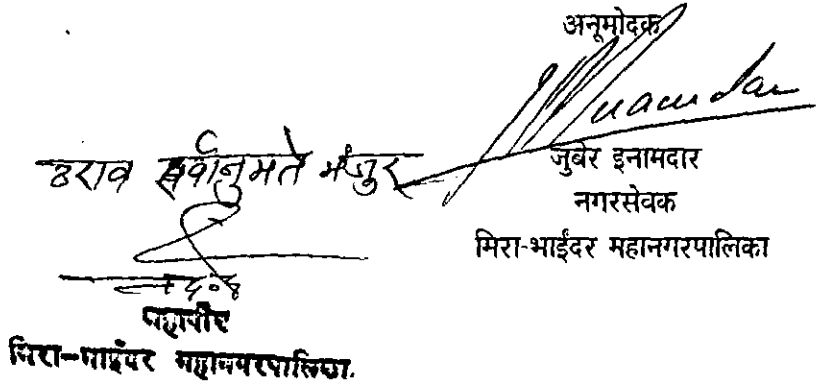 अनूमोदक
ठराव सर्वानुमते मंजुर
जुबेर इनामदार
नगरसेवक
मिरा-भाईंदर महानगरपालिका
महापौर
मिरा-भाईंदर महानगरपालिका.